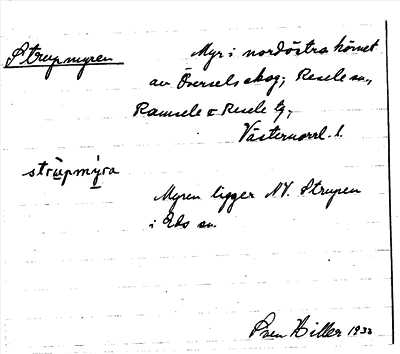 Strupmyren
Myr i nordöstra hörnet
av Översels skog; Resele sn,
Ramsele o Resele tg,
Västernorrl. l.
strùpmýra
Myren ligger NV. Strupen
i Eds sn.
Sven Hiller 1933